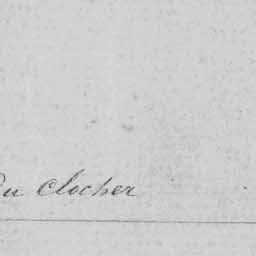 Du Clocher